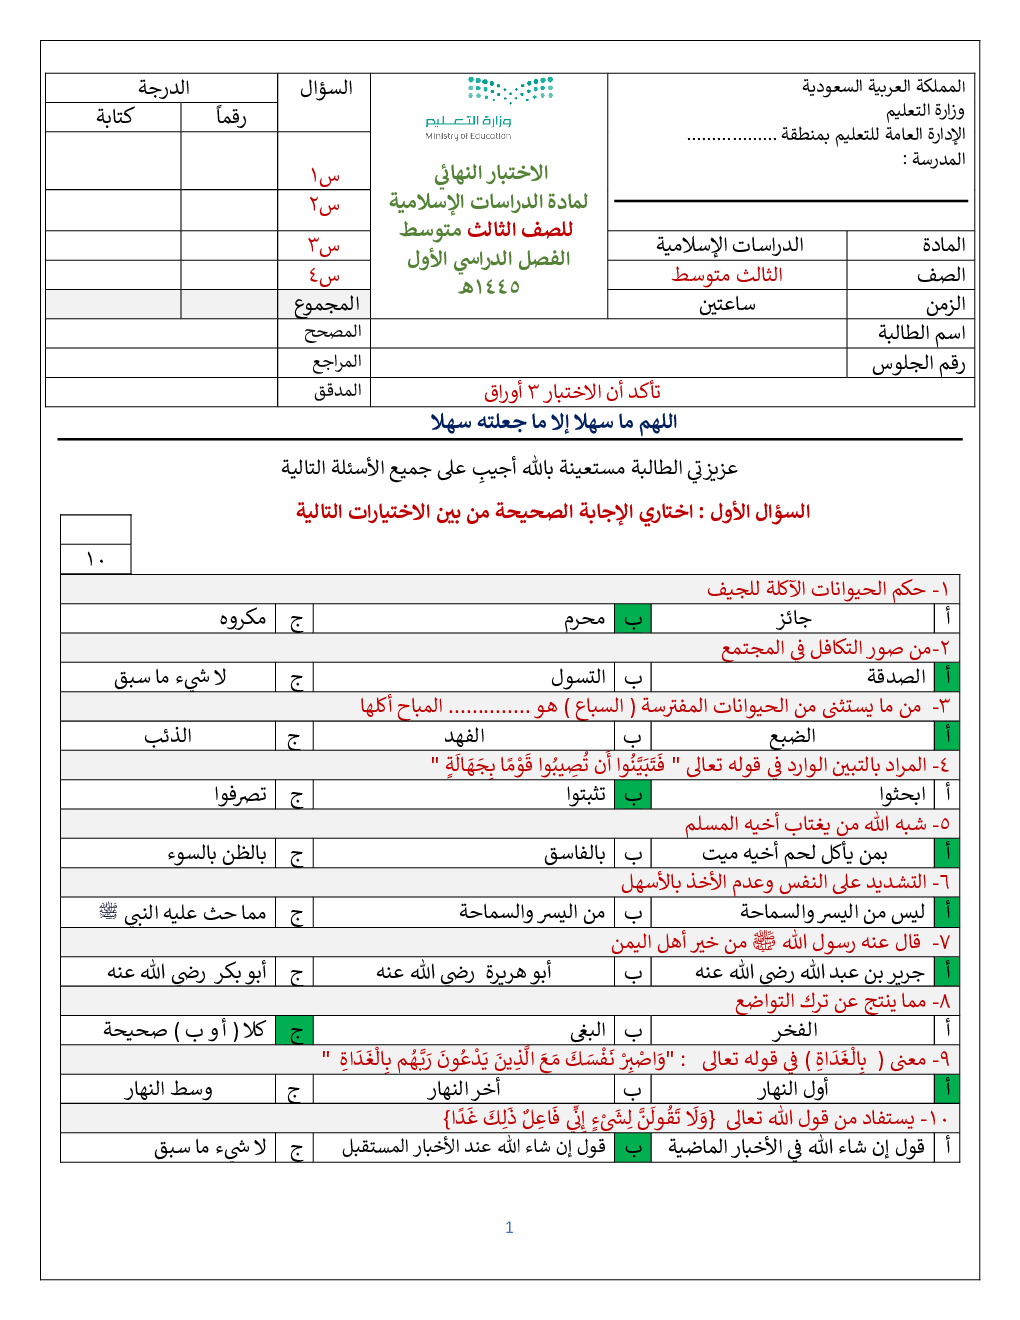 المملكة العربية السعودية
وزارة التعليم
الإدارة العامة للتعليم بمنطقة ..................
المدرسة :
وزارة التعليم
Ministry of Education
الاختبار النهائي
لمادة الدراسات الإسلامية
للصف الثالث متوسط
الفصل الدراسي الأول
١٤٤٥هـ
السؤال الدرجة
رقماً كتابة
س١
س٢
المادة الدراسات الإسلامية س٣
الصف الثالث متوسط س٤
الزمن ساعتين المجموع
اسم الطالبة المصحح
رقم الجلوس المراجع
تأكد أن الاختبار ٣ أوراق المدقق
اللهم ما سهلا إلا ما جعلته سهلا
عزيزتي الطالبة مستعينة بالله أجيبِ على جميع الأسئلة التالية
السؤال الأول : اختاري الإجابة الصحيحة من بين الاختيارات التالية
١٠
١- حكم الحيوانات الآكلة للجيف
أ جائز ب محرم ج مكروه
٢-من صور التكافل في المجتمع
أ الصدقة ب التسول ج لا شيء ما سبق
٣- من ما يستثنى من الحيوانات المفترسة ( السباع ) هو .............. المباح أكلها
أ الضبع ب الفهد ج الذئب
٤- المراد بالتبين الوارد في قوله تعالى " فَتَبَيَّنُوا أَن تُصِيبُوا قَوْمًا بِجَهَالَةٍ "
أ ابحثوا ب تثبتوا ج تصرفوا
٥- شبه الله من يغتاب أخيه المسلم
أ بمن يأكل لحم أخيه ميت ب بالفاسق ج بالظن بالسوء
٦- التشديد على النفس وعدم الأخذ بالأسهل
أ ليس من اليسر والسماحة ب من اليسر والسماحة ج مما حث عليه النبي ﷺ
٧- قال عنه رسول الله ﷺ من خير أهل اليمن
أ جرير بن عبد الله رضي الله عنه ب أبو هريرة رضي الله عنه ج أبو بكر رضي الله عنه
٨- مما ينتج عن ترك التواضع
أ الفخر ب البغى ج كلا ( أ و ب ) صحيحة
٩- معنى ( بِالْغَدَاةِ ) في قوله تعالى : "وَاصْبِرْ نَفْسَكَ مَعَ الَّذِينَ يَدْعُونَ رَبَّهُم بِالْغَدَاةِ "
أ أول النهار ب أخر النهار ج وسط النهار
١٠- يستفاد من قول الله تعالى {وَلَا تَقُولَنَّ لِشَيْءٍ إِنِّي فَاعِلٌ ذَلِكَ غَدًا}
أ قول إن شاء الله في الأخبار الماضية ب قول إن شاء الله عند الأخبار المستقبل ج لا شيء ما سبق
1